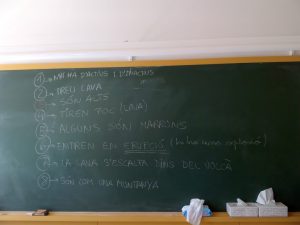 1 → N'HI HA D'ACTIUS I D'INACTIUS
2 → TREU LAVA
3 → SÓN ALTS
4 → TIREN FOC (LAVA)
5 → ALGUNS SÓN MARRONS
6 → ENTREN EN ERUPCIÓ (hi ha una explosió)
7 → LA LAVA S'ESCALFA DINS DEL VOLCÀ
8 → SÓN COM UNA MUNTANYA